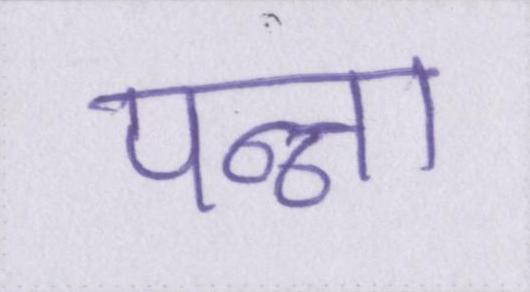 पन्ना